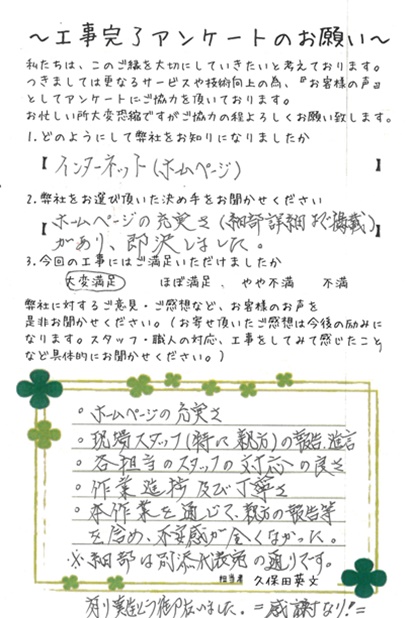 ～工事完了アンケートのお願い～
私たちは、このご縁を大切にしていきたいと考えております。
つきましては更なるサービスや技術向上の為、『お客様の声』
としてアンケートにご協力を頂いております。
お忙しい所大変恐縮ですがご協力の程よろしくお願い致します。
1.どのようにして弊社をお知りになりましたか
【インターネット(ホームページ) 】
2.弊社をお選び頂いた決め手をお聞かせください
【ホームページの充実さ(細部詳細まで掲載)
があり、即決しました。 】
3.今回の工事にはご満足いただけましたか
大変満足 ほぼ満足、 やや不満 不満
弊社に対するご意見・ご感想など、お客様のお声を
是非お聞かせください。(お寄せ頂いたご感想は今後の励みに
なります。スタッフ・職人の対応、工事をしてみて感じたこと
など具体的にお聞かせください。)
○ホームページの充実さ
○現場スタッフ(特に親方)の報告、進言
○各担当のスタッフの対応の良さ
○作業進捗及び丁寧さ
○本作業を通じて、親方の報告等
を含め、不安感が全くなかった。
※細部は別添代表宛の通りです。
担当者 久保田英文
有り難うございました。=感謝なり!=